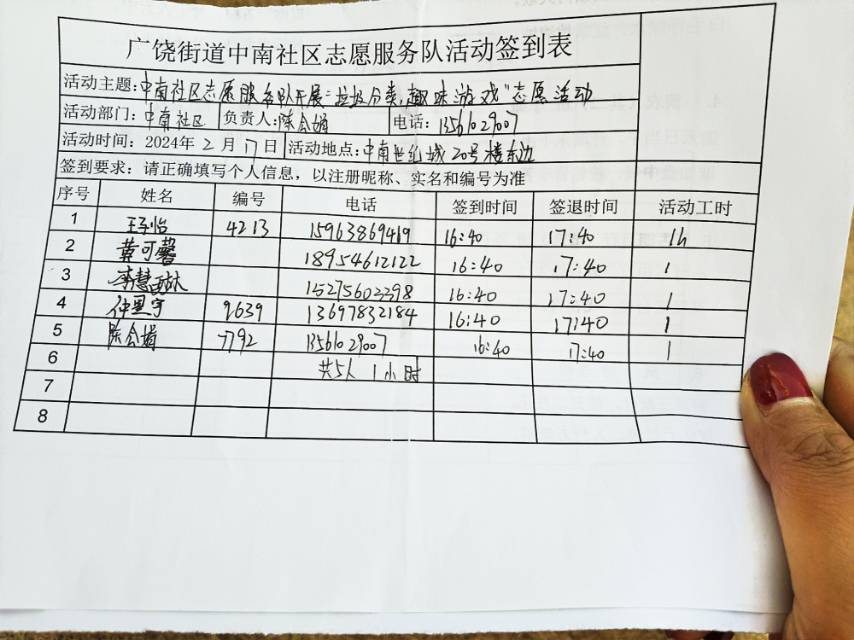 广饶街道中南社区志愿服务队活动签到表
活动主题:中南社区志愿服务队开展"垃圾分类,趣味游戏"志愿活动
活动部门:中南社区 负责人:陈会娟 电话:13561029007
活动时间:2024年2月17日 活动地点:中南世纪城20号楼东边
签到要求:请正确填写个人信息,以注册昵称、实名和编号为准
序号 姓名 编号 电话 签到时间 签退时间 活动工时
1 王子怡 4213 15963869419 16:40 17:40 1h
2 黄可馨 18954612122 16:40 17:40 1
3 李慧琳 15275602398 16:40 17:40 1
4 仲思宇 9639 13697832184 16:40 17:40 1
5 陈会娟 7792 13561029007 16:40 17:40 1
6 共5人 1小时
7
8